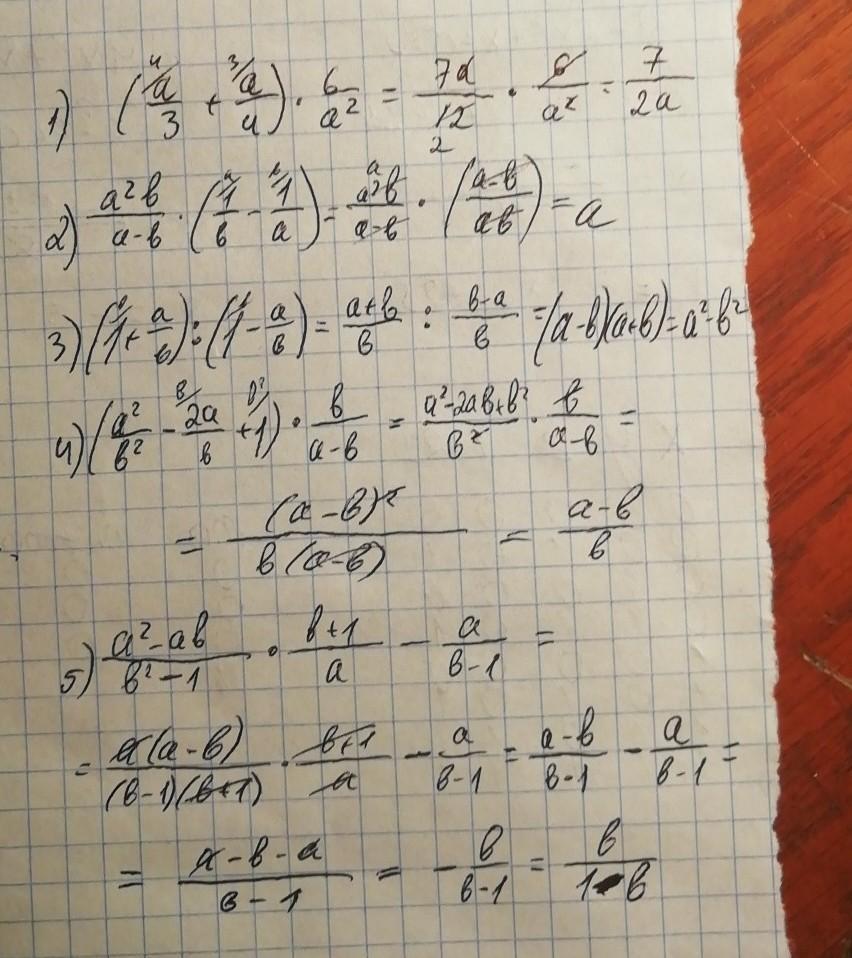 1) (a/3 + a/4) · 6/a² = 7a/12 · 6/a² = 7/2a
2) a²b/a-b · (1/b - 1/a) = a²b/a-b · (a-b/ab) = a
3) (1 + a/b) : (1 - a/b) = a+b/b : b-a/b = (a-b)(a+b) = a²-b²
4) (a²/b² - 2a/b + 1) · b/a-b = a²-2ab+b²/b² · b/a-b =
= (a-b)²/b(a-b) = a-b/b
5) a²-ab/b²-1 · b+1/a - a/b-1 =
= a(a-b)/(b-1)(b+1) · b+1/a - a/b-1 = a-b/b-1 - a/b-1 =
= a-b-a/b-1 = - b/b-1 = b/1-b